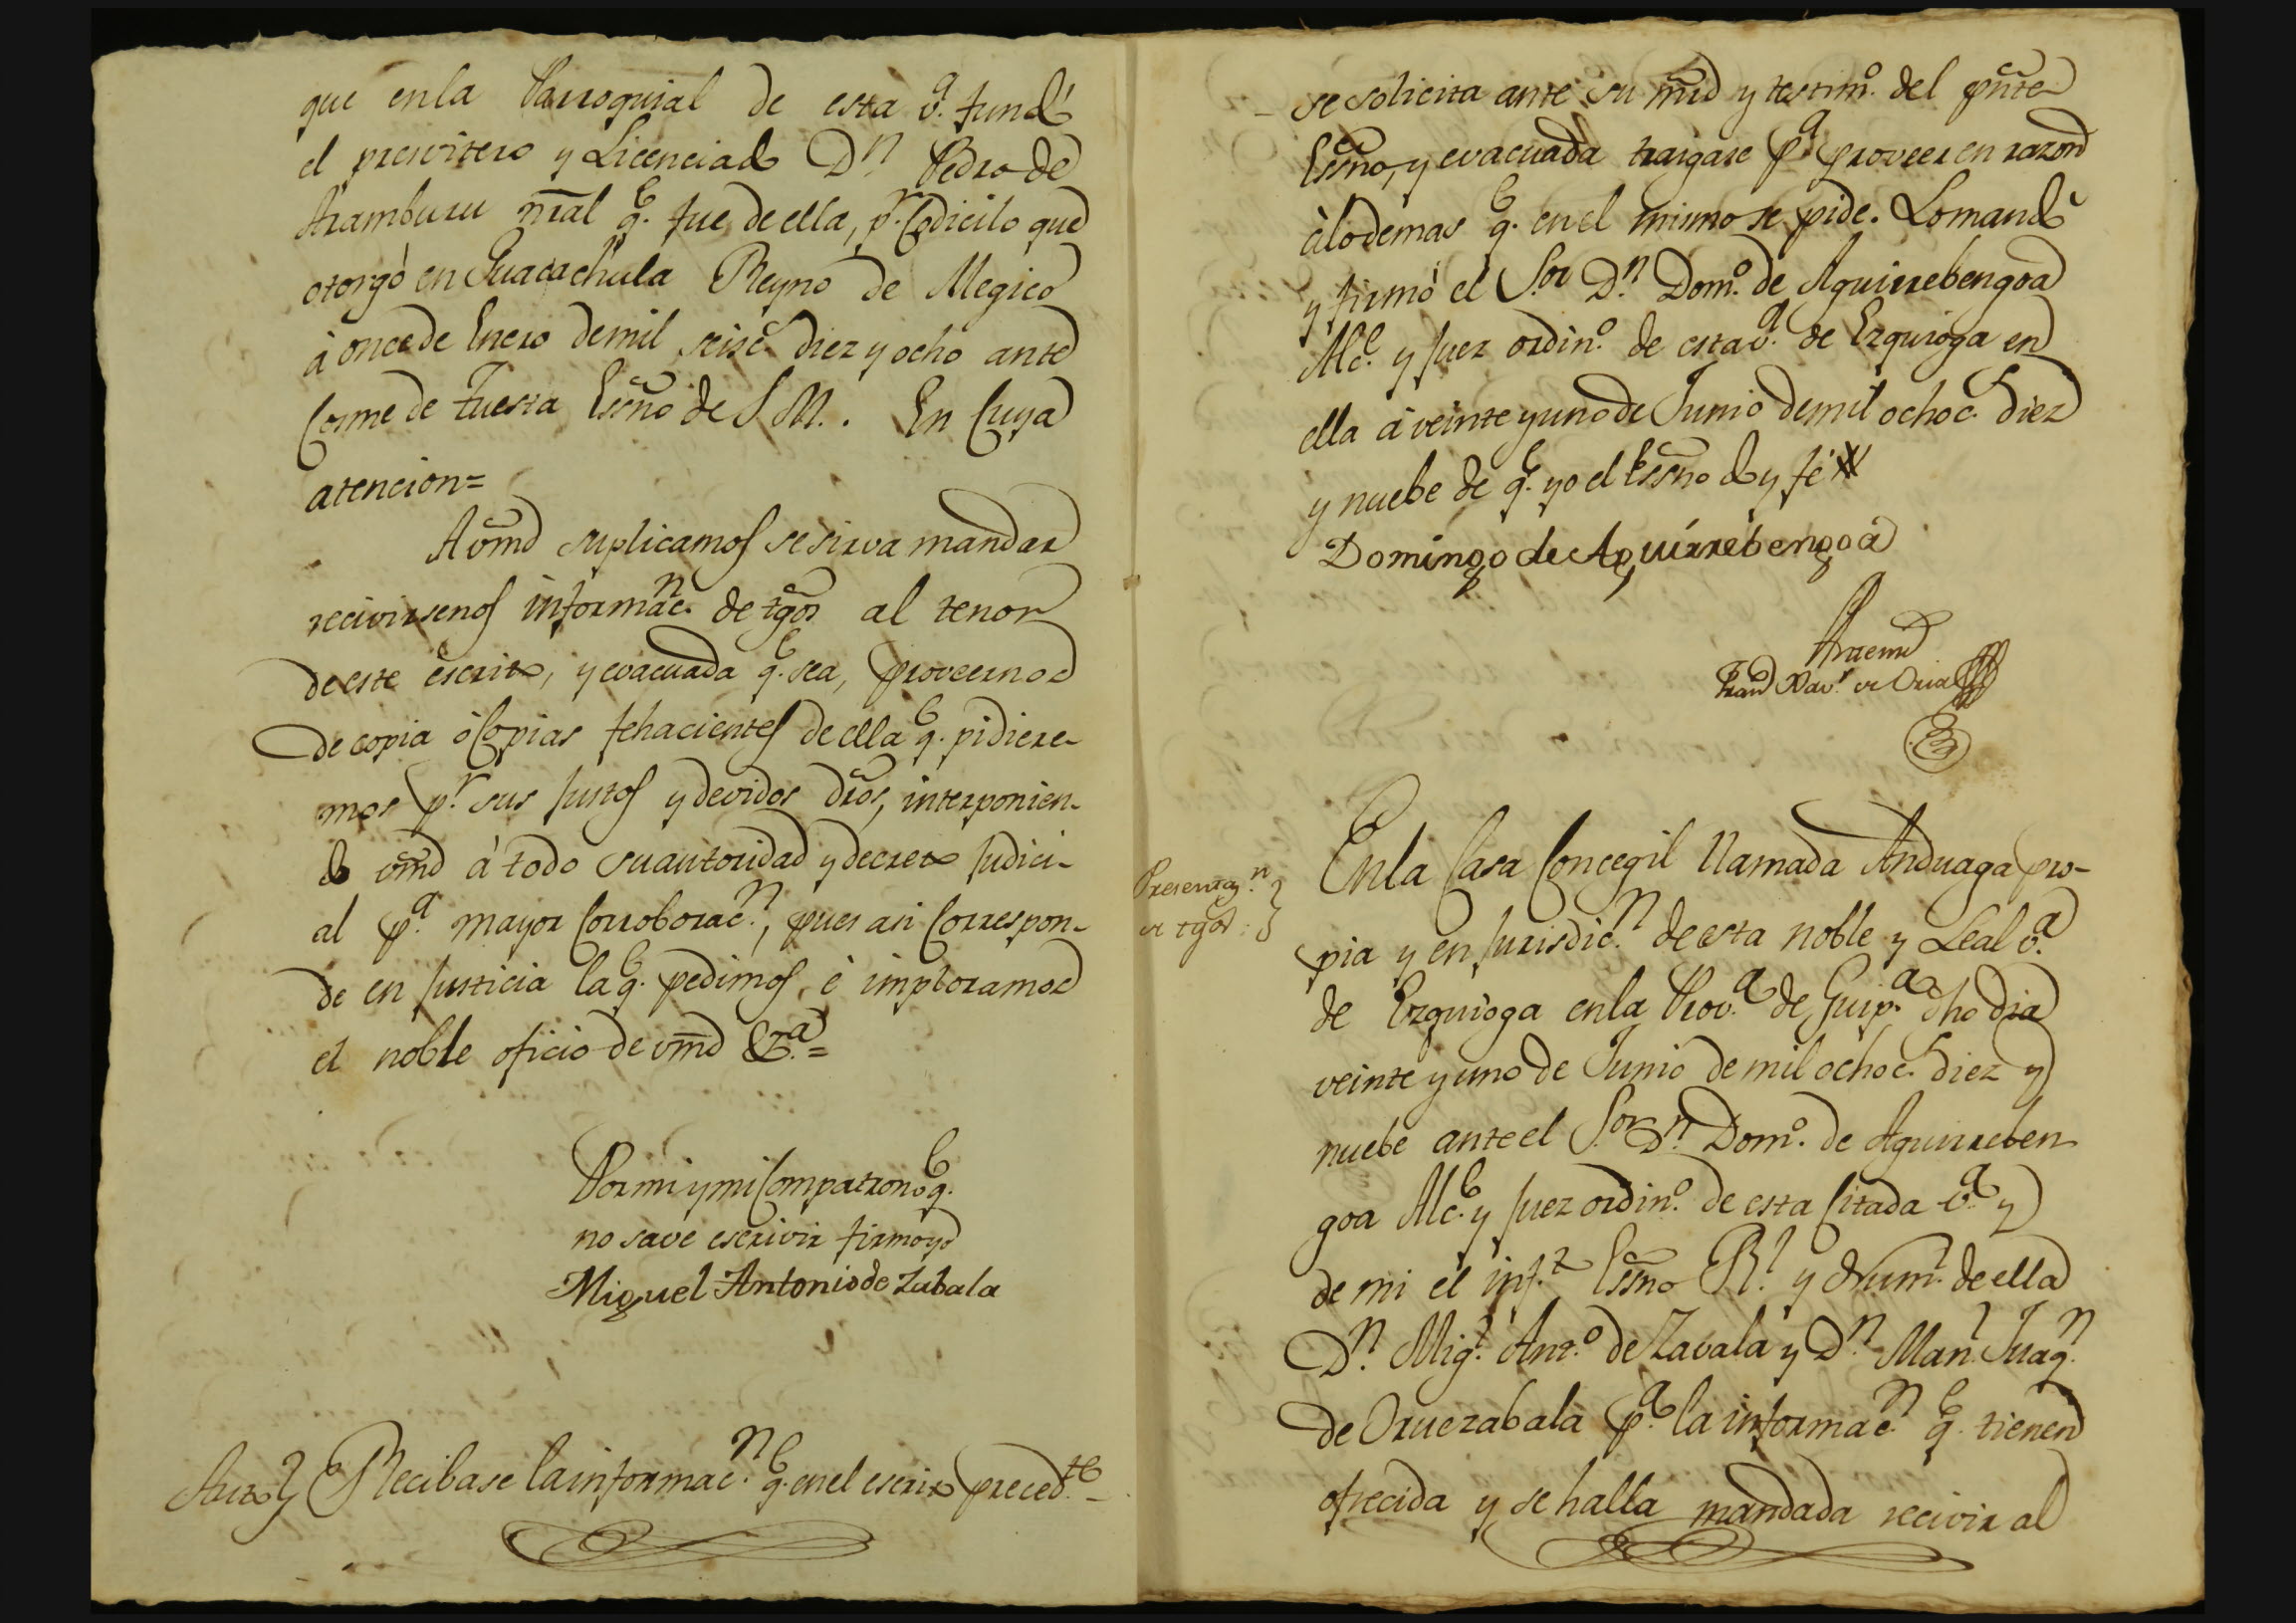 que enla Parroquial de esta v.ª fundó
el presvitero y Licenciado D.n Pedro de
Aramburu nral q.e fue de ella, p.r Codicilo que
otorgó en Guacachula Reyno de Megico
à once de Enero de mil seisc.s diez y ocho ante
Cosme de Fuesta Essno de S. M. . En Cuya
atencion=
A vmd suplicamos se sirva mandar
recivirsenos informac.n de tgos al tenor
de este escrito, y evacuada q.e sea, proveernos
de copia ó Copias fehacientes de ella q.e pidiere-
mos p.r sus Justos y devidos dros, interponien-
do vmd à todo su autoridad y decreto Judici-
al p.ª mayor Corroborac.n, pues asi Correspon-
de en Justicia la q.e pedimos, è imploramos
el noble oficio de vmd &.ª=
Por mi y mi Compatrono q.e
no save escrivir firmo yo
Miguel Antonio de Zabala
Auto} Recibase la informac.n q.e en el escrito preced.te
se solicita ante su mrd y testim.o del pñte
Essno, y evacuada traigase p.ª proveer en razon
à lo demas q.e en el mismo se pide. Lo mandó
y firmó el S.or D.n Dom.o de Aguirrebengoa
Alc.e y Juez ordin.o de esta v.ª de Ezquioga en
ella à veinte y uno de Junio de mil ochoc.s diez
y nuebe de q.e yo el Essno doy fé
Domingo de Aguirrebengoa
Antemi
Fran.co Xav.r de Oria
Presentaz.n
de tgos:}
En la Casa Concegil llamada Anduaga pro-
pia y en Jurisdic.n de esta noble y Leal v.ª
de Ezquioga en la Prov.ª de Guip.ª dho dia
veinte y uno de Junio de mil ochoc.s diez y
nuebe ante el S.or D.n Dom.o de Aguirreben
goa Alc.e y Juez ordin.o de esta Citada v.ª y
de mi el inf.to Essno R.l y Num.l de ella
D.n Mig.l Ant.o de Zavala y D.n Man.l Juaq.n
de Oruezabala p.ª la informac.n q.e tienen
ofrecida y se halla mandada recivir al